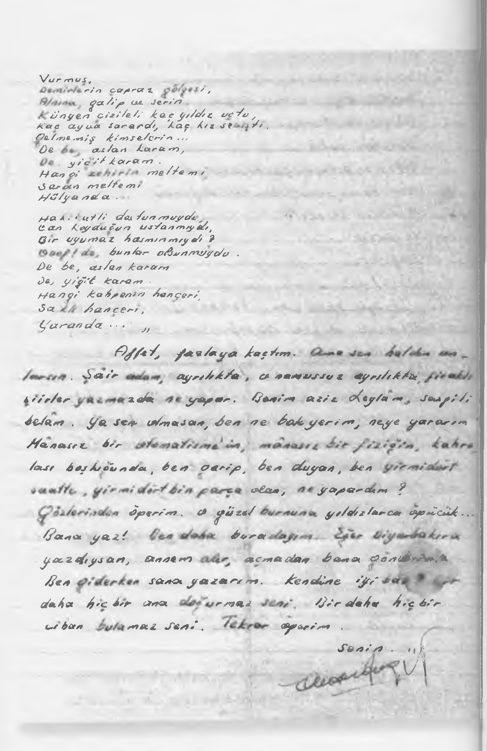 Vurmuş,
Demirlerin çapraz gölgesi,
Alnına, galip ve serin.
Künyen çizileli kaç yıldız uçtu,
Kaç ayva sarardı, kaç kız sevişti.
Gelmemiş kimselerin...
De be, aslan karam,
De yiğit karam.
Hangi zehirin meltemi,
Saran meltemi
Hülyanda...
Hakikatli dostunmuydu,
Can koyduğun ustanmıydı,
Bir uyumaz hasmınmıydı?
de, bunlar olsunmuydu.
De be, aslan karam
De, yiğit karam
Hangi kahpenin hançeri,
Saklı hançeri,
Yaranda... "
Affet, fazlaya kaçtım. Ama sen halden an-
larsın. Şâir adam, ayrılıkta, o namussuz ayrılıkta, firaklı
şiirler yazmazda ne yapar. Benim aziz Leylâm, sevgili
belâm. Ya sen olmasan, ben ne bok yerim, neye yararım
Mânasız bir otomatisme'in, mânasız bir fiziğin, kahro
lası boşluğunda, ben garip, ben duyan, ben yirmidört
saatte, yirmidört bin parça olan, ne yapardım?
Gözlerinden öperim. O güzel burnuna yıldızlarca öpücük...
Bana yaz! Ben daha buradayım. Eğer Diyarbakıra
yazdıysan, annem alır, açmadan bana gönderir.
Ben giderken sana yazarım. Kendine iyi bak? Bir
daha hiç bir ana doğurmaz seni. Bir daha hiç bir
bulamaz seni. Tekrar öperim.
Senin. "